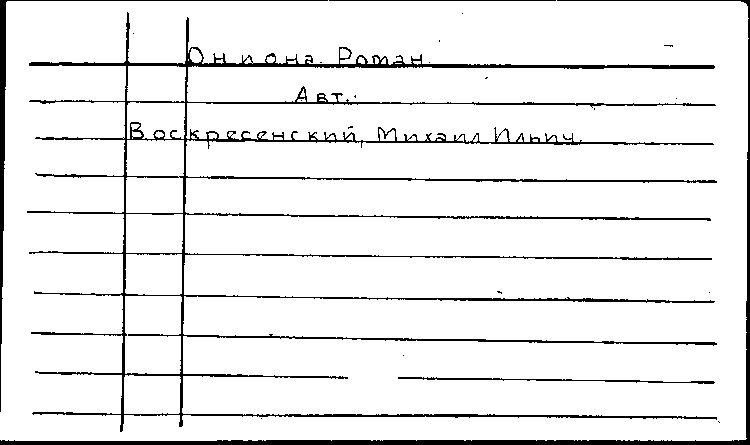 Он и она. Роман.
Авт.:
Воскресенский, Михаил Ильич.